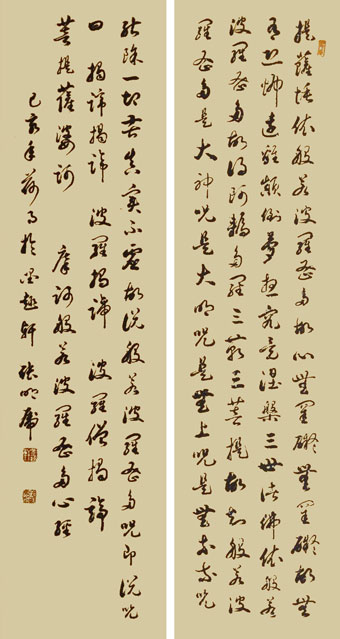 提薩埵依般若波羅蜜多故心無罣礙無罣礙故無
有恐怖遠離顛倒夢想究竟涅槃三世諸佛依般若
波羅蜜多故得阿耨多羅三藐三菩提故知般若波
羅蜜多是大神咒是大明咒是無上咒是無等等咒
能除一切苦真實不虛故說般若波羅蜜多咒即說咒
曰 揭諦揭諦 波羅揭諦 波羅僧揭諦
菩提薩婆訶 摩訶般若波羅蜜多心經
己亥年荷月於趣軒 張明